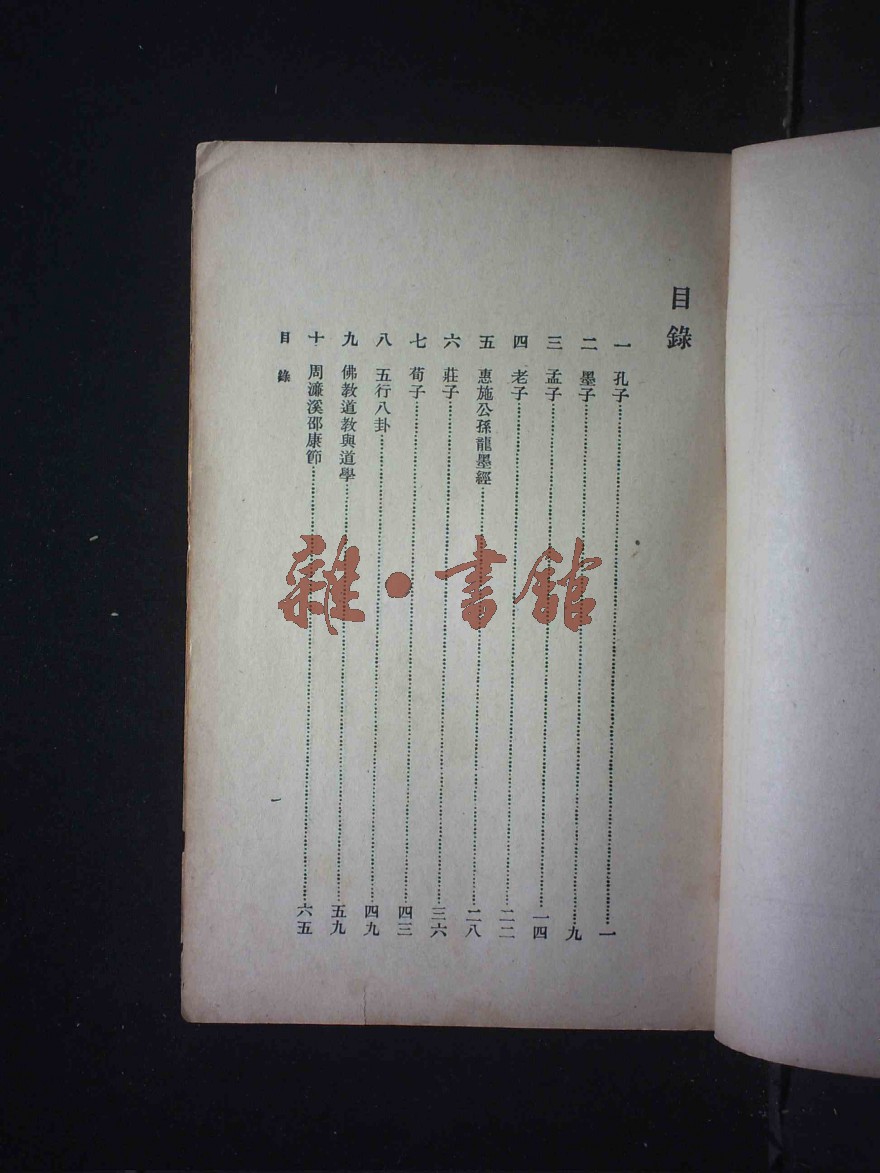 目錄
一 孔子……一
二 墨子……九
三 孟子……一四
四 老子……二二
五 惠施公孫龍墨經……二八
六 莊子……三六
七 荀子……四三
八 五行八卦……四九
九 佛教道教與道學……五九
十 周濂溪邵康節……六五
目錄
一
雜·書館